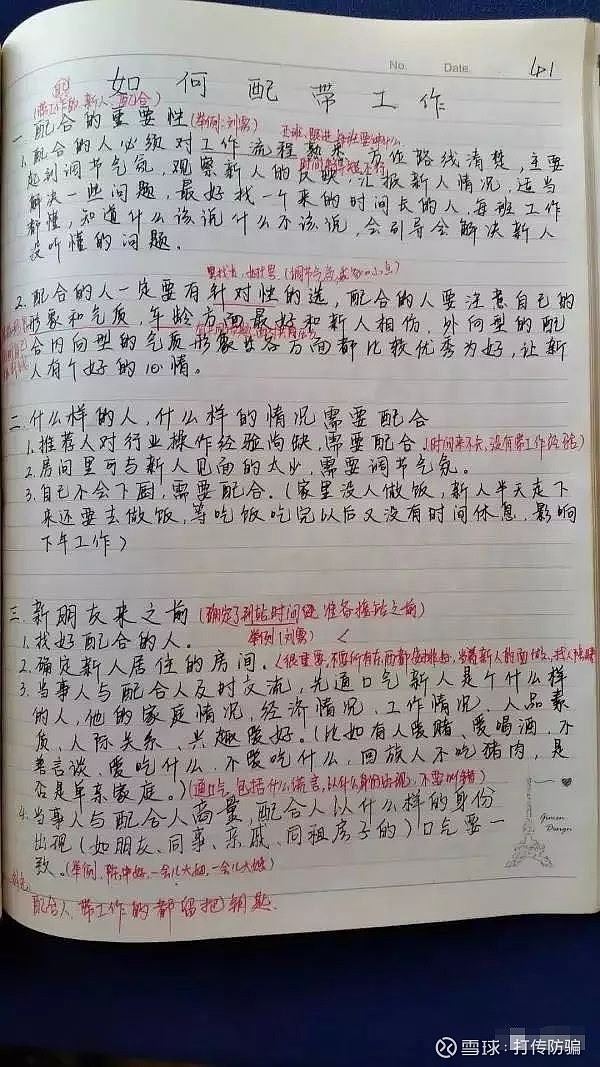 No. Date. 41
如何配带工作
(带工作的、新人、配合)
一、配合的重要性(举例:刘霞)
1.配合的人必须对工作流程熟悉、方位路线清楚,主要
起到调节气氛,观察新人的反映,汇报新人情况,适当
解决一些问题,最好找一个来的时间长的人,每班工作
都懂,知道什么该说什么不该说,会引导会解决新人
没听懂的问题。
2.配合的人一定要有针对性的选,配合的人要注意自己的
形象和气质,年龄方面最好和新人相仿,外向型的配
合内向型的气质形象等各方面都比较优秀为好,让新
人有个好的心情。
二、什么样的人,什么样的情况需要配合
1.推荐人对行业操作经验尚缺,需要配合。(时间来不长,没有带工作经验)
2.房间里可与新人见面的太少,需要调节气氛。
3.自己不会下厨,需要配合。(家里没人做饭,新人半天走下
来还要去做饭,等吃饭吃完以后又没有时间休息,影响
下午工作)
三、新朋友来之前(确定了到站时间 准备接站之前)
1.找好配合的人。(举例:刘霞)
2.确定新人居住的房间。(很重要,不要所有东西都
3.当事人与配合人及时交流,先通口气新人是个什么样
的人,他的家庭情况、经济情况、工作情况、人品素
质、人际关系、兴趣爱好。(比如有人爱赌、爱喝酒、不
善言谈、爱吃什么、不爱吃什么,回族人不吃猪肉,是
否是单亲家庭。)(通口气,包括什么谎言,以什么身份出现,不要叫错)
4.当事人与配合人商量,配合人以什么样的身份
出现(如朋友、同事、亲戚、同租房子的)口气要一
致。(举例: 一会儿大姐,一会儿大嫂)
配合人、带工作的都留把钥匙
雪球:打传防骗